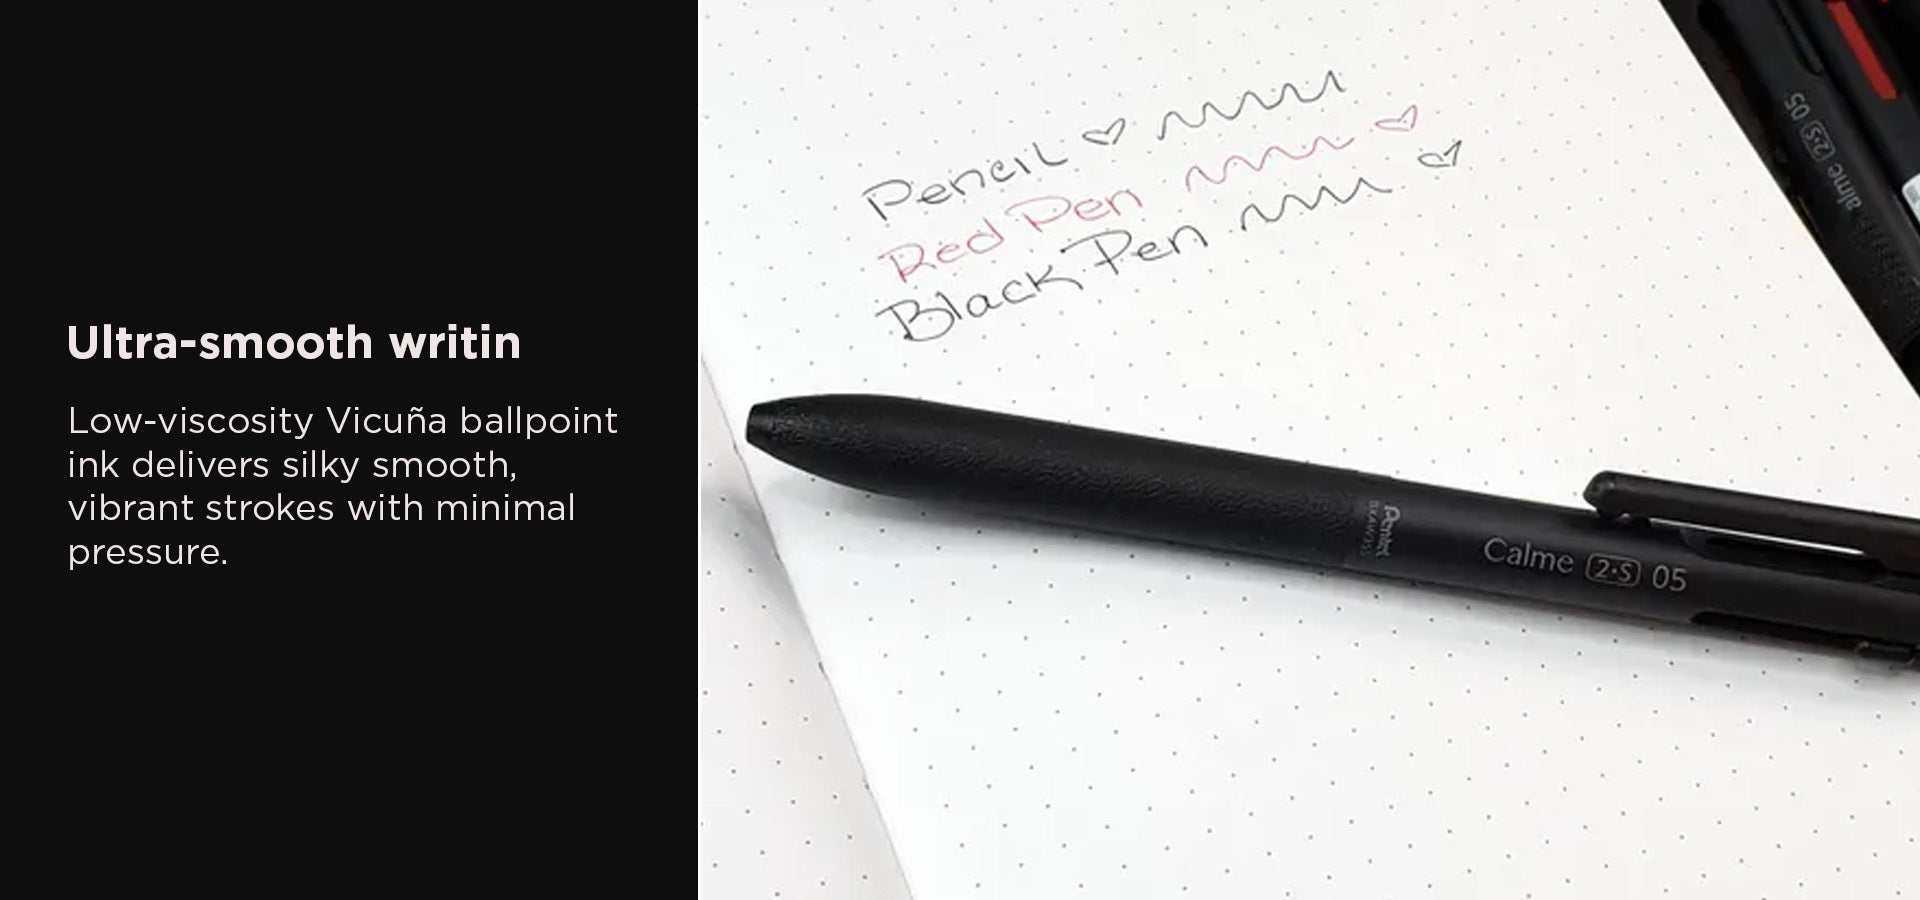 Ultra-smooth writin
Low-viscosity Vicuña ballpoint
ink delivers silky smooth,
vibrant strokes with minimal
pressure.
Pencil
Red Pen
Black Pen
Pentel
Calme 2·S 05
alme 2·S 05